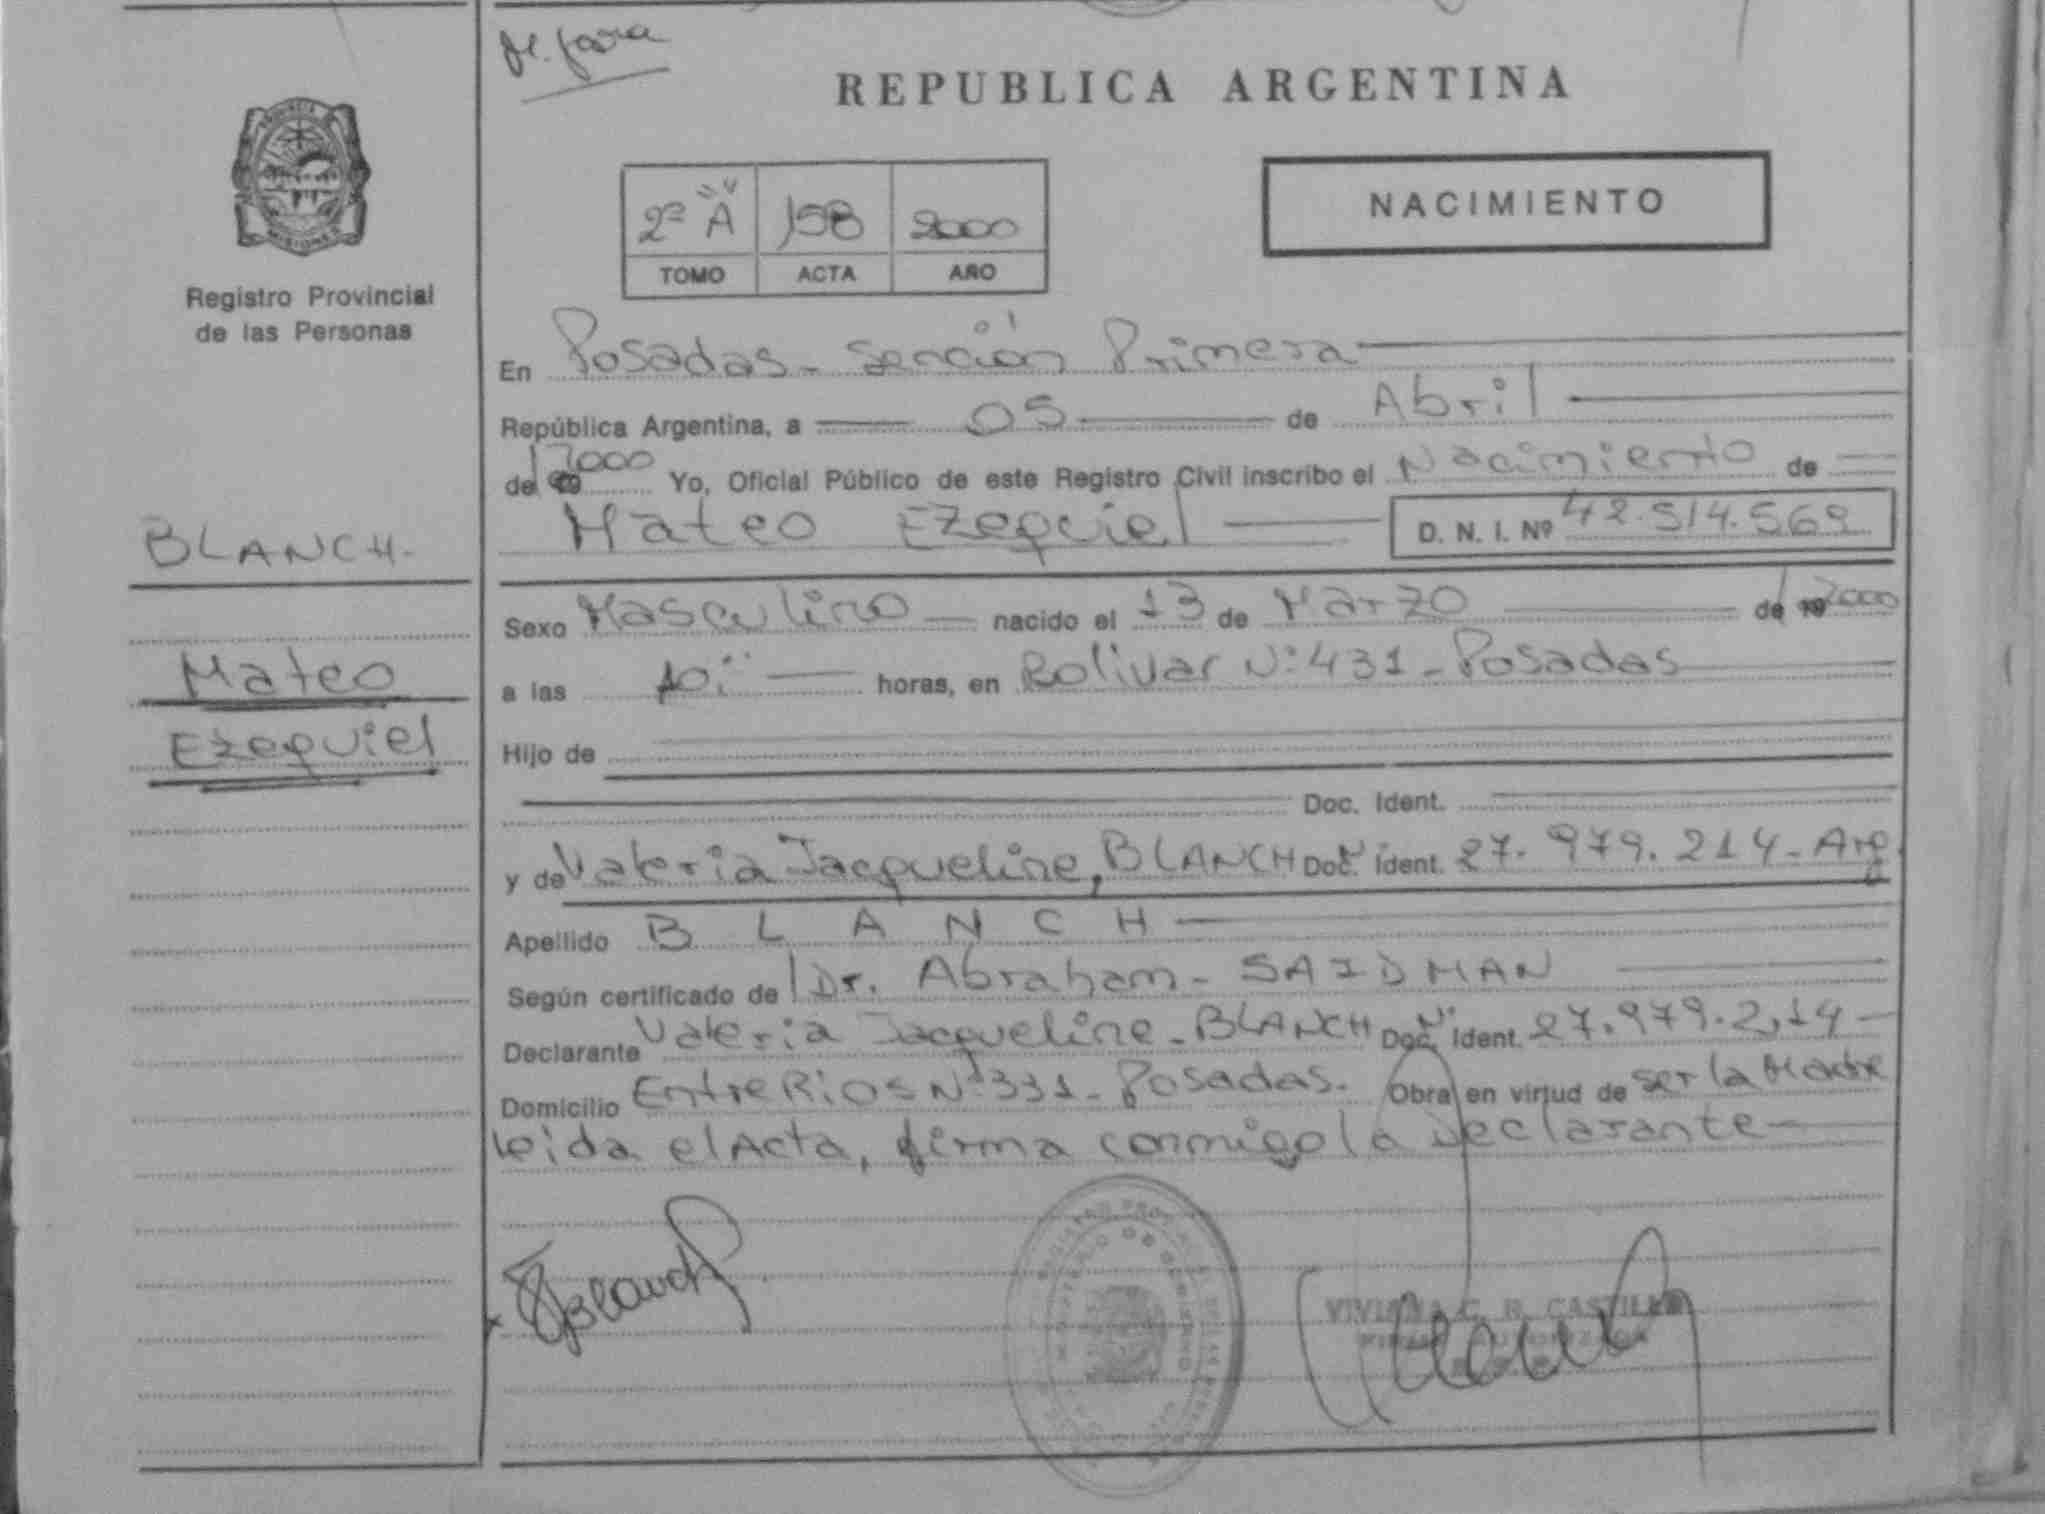 REPUBLICA ARGENTINA
PROVINCIA
MISIONES
Registro Provincial
de las Personas
2º "A" 158 2000
TOMO ACTA AÑO
NACIMIENTO
En Posadas - Sección Primera
República Argentina, a 05 de Abril
de 2000 Yo, Oficial Público de este Registro Civil inscribo el Nacimiento de
Mateo Ezequiel D. N. I. Nº 42.514.569
BLANCH.
Mateo
Ezequiel
Sexo Masculino nacido el 13 de Marzo de 2000
a las 10: horas, en Bolivar Nº 431 - Posadas
Hijo de
Doc. Ident.
y de Valeria Jacqueline, BLANCH Doc. Ident. 27.979.214 - Arg.
Apellido B L A N C H
Según certificado de Dr. Abraham - SAIDMAN
Declarante Valeria Jacqueline - BLANCH Doc. Ident. 27.979.214
Domicilio Entre Rios Nº 331 - Posadas. Obra en virtud de ser la Madre
leida el Acta, firma conmigo la declarante
Blanch
VIVIANA C. R. CASTILLO